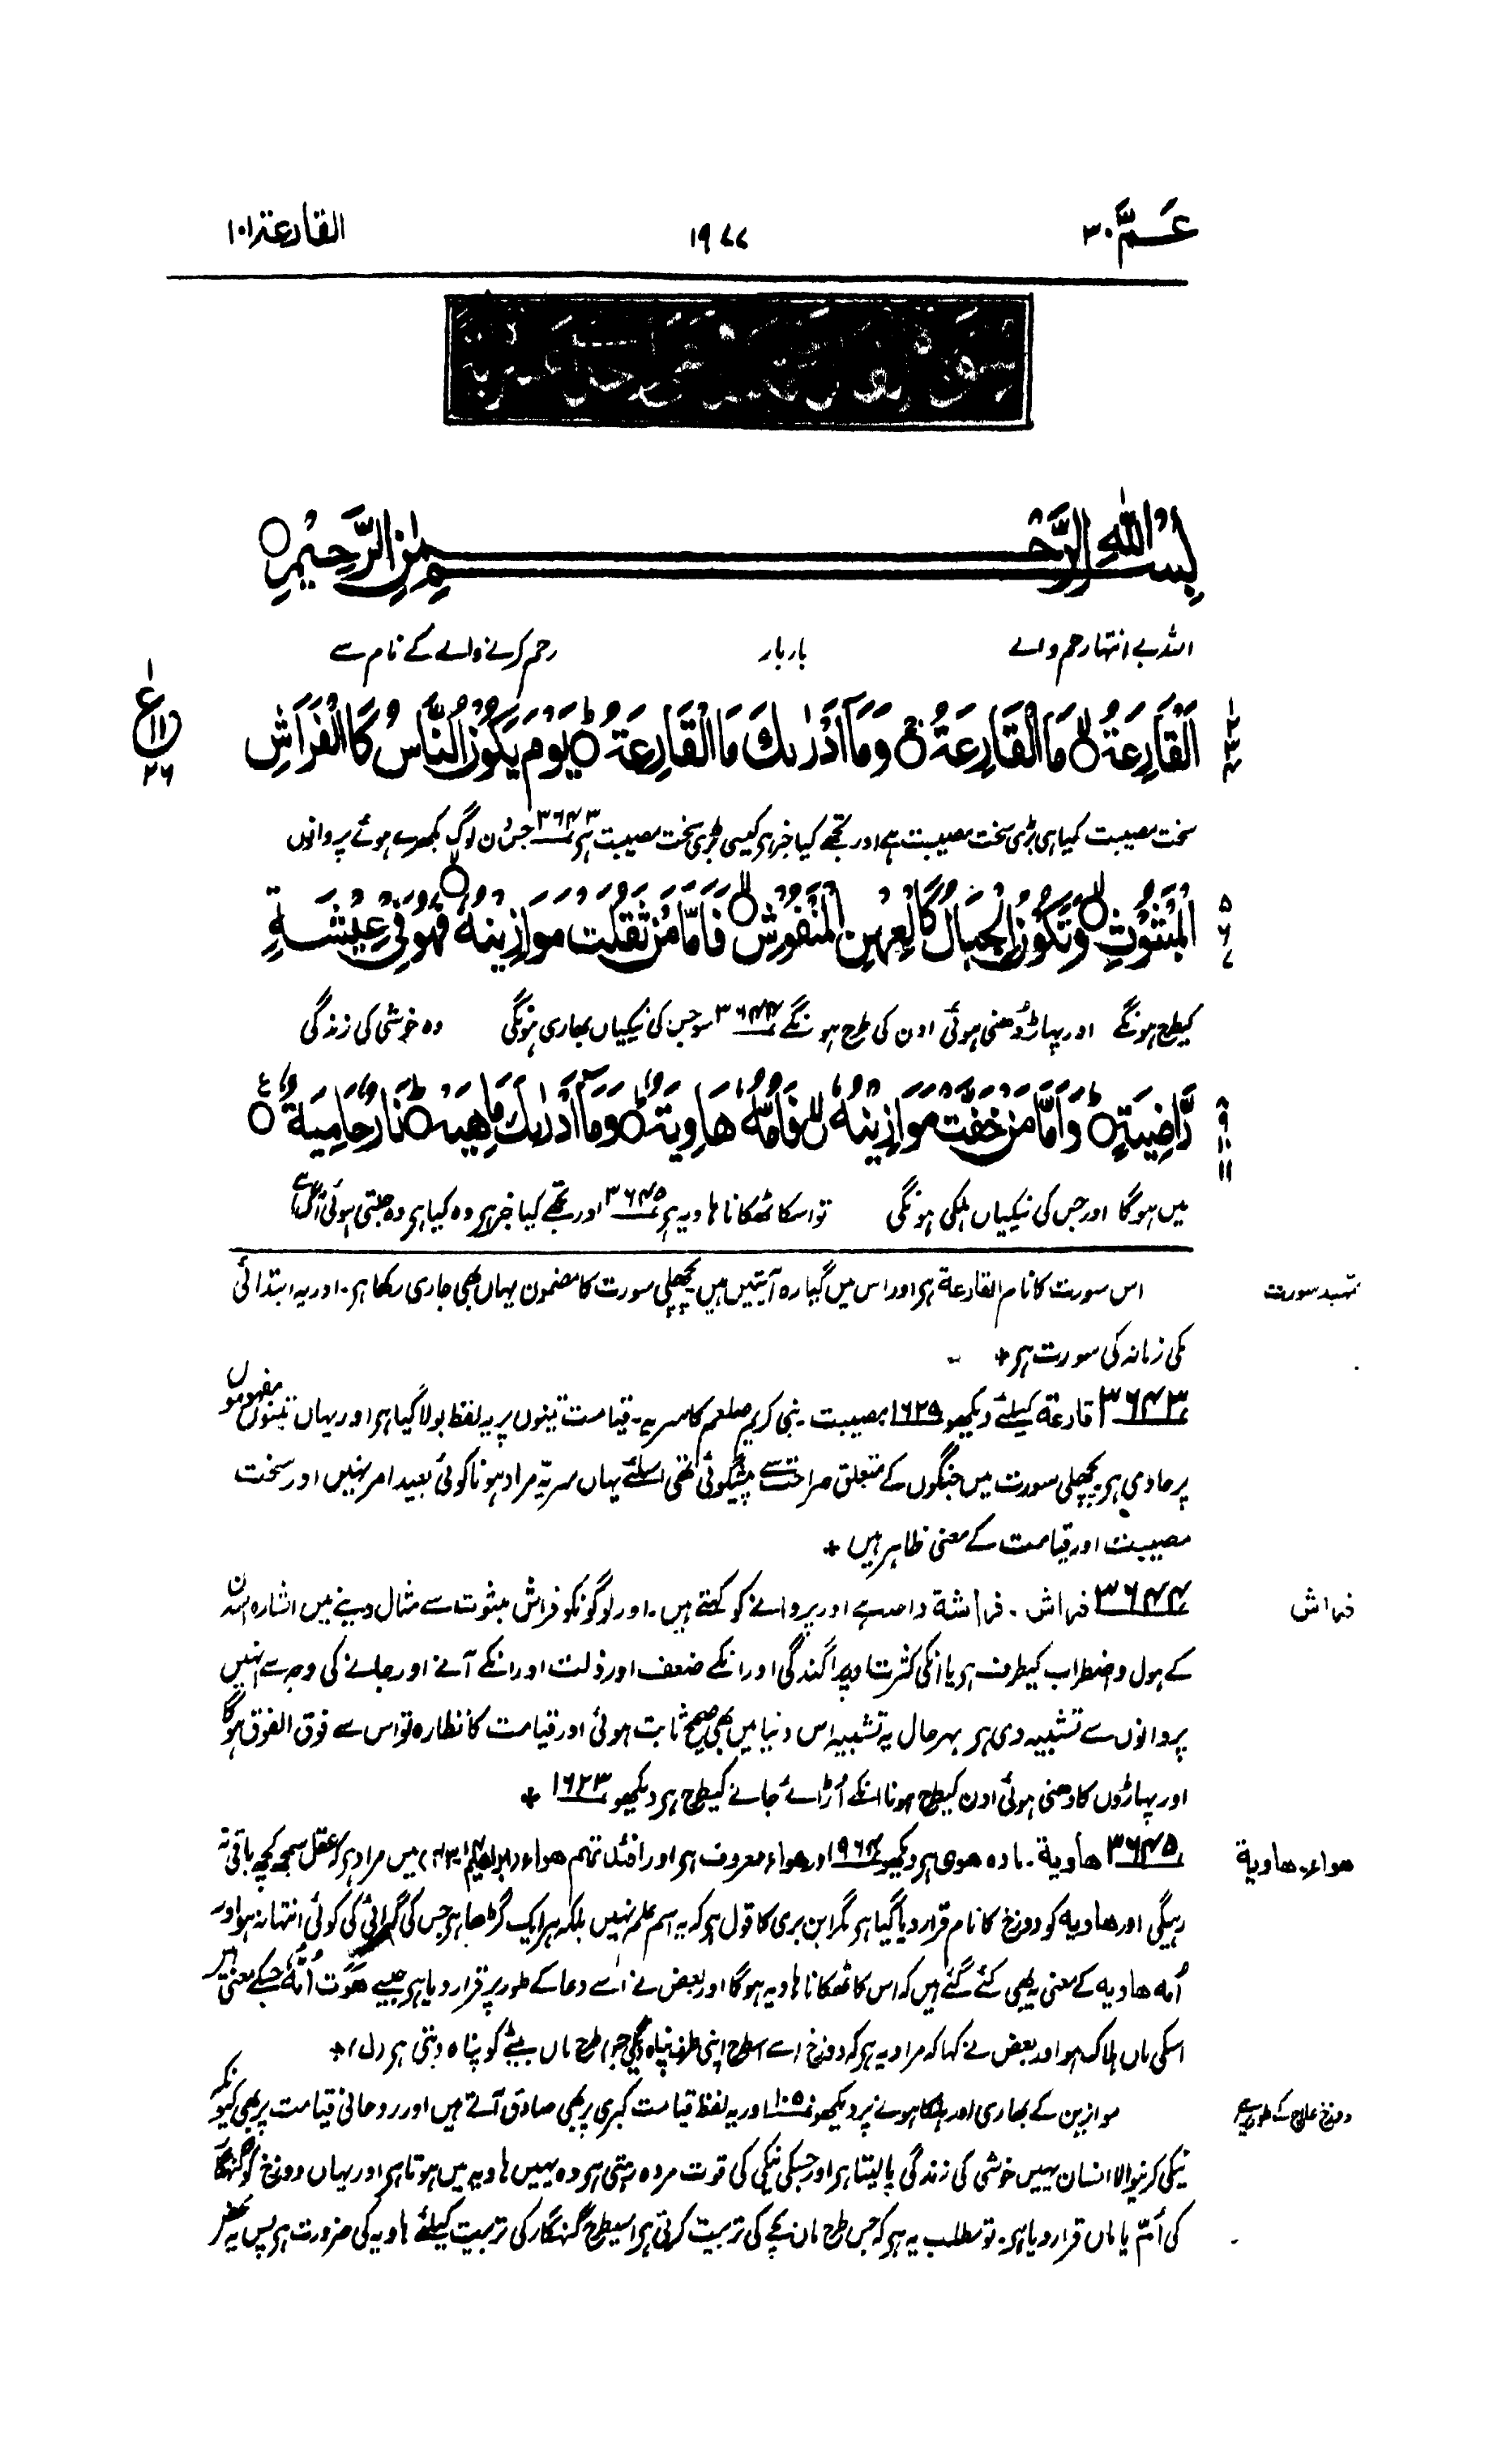 عَمَّ ۳۰
۱۹۷۷
القارعۃ ۱۰۱
بِسْمِ اللّٰهِ الرَّحْمٰنِ الرَّحِيْمِ
اللہ بے انتہا رحم والے بار بار رحم کرنے والے کے نام سے
ع ۱۱ ۲۶
اَلْقَارِعَةُ مَا الْقَارِعَةُ وَمَآ اَدْرٰىكَ مَا الْقَارِعَةُ يَوْمَ يَكُوْنُ النَّاسُ كَالْفَرَاشِ
۱ ۲ ۳ ۴
سخت مصیبت کیا ہی بڑی سخت مصیبت ہے اور تجھے کیا خبر ہو کیسی بڑی سخت مصیبت ہو ۳۶۴۳ جس دن لوگ بکھرے ہوئے پروانوں
الْمَبْثُوْثِ وَتَكُوْنُ الْجِبَالُ كَالْعِهْنِ الْمَنْفُوْشِ فَاَمَّا مَنْ ثَقُلَتْ مَوَازِيْنُهٗ فَهُوَ فِيْ عِيْشَةٍ
۵ ۶ ۷
کیطرح ہونگے اور پہاڑ دُھنی ہوئی اون کی طرح ہونگے ۳۶۴۴ سو جس کی نیکیاں بھاری ہونگی وہ خوشی کی زندگی
رَّاضِيَةٍ وَاَمَّا مَنْ خَفَّتْ مَوَازِيْنُهٗ فَاُمُّهٗ هَاوِيَةٌ وَمَآ اَدْرٰىكَ مَا هِيَهْ نَارٌ حَامِيَةٌ
۹ ۱۰ ۱۱
میں ہوگا اور جس کی نیکیاں ہلکی ہونگی تو اسکا ٹھکانا ہاویہ ہو ۳۶۴۵ اور تجھے کیا خبر ہو وہ کیا ہو وہ جلتی ہوئی آگ ہے
تمہید سورت
اس سورت کا نام القارعة ہو اور اس میں گیارہ آیتیں ہیں پچھلی سورت کا مضمون یہاں بھی جاری رکھا ہو۔ اور یہ ابتدائی
مکی زمانہ کی سورت ہو+
۳۶۴۳ قارعة کیلئے دیکھو ۱۶۲۵ مصیبت۔ نبی کریم صلعم کا سریہ۔ قیامت تینوں پر یہ لفظ بولا گیا ہو اور یہاں تینوں مفہوموں
پر حاوی ہو پچھلی سورت میں جنگوں کے متعلق صراحت سے پیشگوئی تھی اسلئے یہاں سریّہ مراد ہونا کوئی بعید امر نہیں اور سخت
مصیبت اور قیامت کے معنی ظاہر ہیں +
فراش
۳۶۴۴ فراش۔ فراشة واحد ہے اور پروانے کو کہتے ہیں۔ اور لوگونکو فراش مبثوث سے مثال دینے میں اشارہ ان
کے ہول و اضطراب کیطرف ہو یا انکی کثرت اور پراگندگی اور انکے ضعف اور ذلت اور انکے آنے اور جانے کی وجہ سے انہیں
پروانوں سے تشبیہ دی ہو بہرحال یہ تشبیہ اس دنیا میں بھی صحیح ثابت ہوئی اور قیامت کا نظارہ تو اس سے فوق الفوق ہوگا
اور پہاڑوں کا دھنی ہوئی اون کیطرح ہونا انکے اُڑائے جانے کیطرح ہو دیکھو ۱۶۲۳ +
ھواء۔ ھاویة
۳۶۴۵ ھاویة۔ مادہ ھوی ہو دیکھو ۹۶۴ اور ھواء معروف ہو اور افئدتھم ھواء (ابراھیم ۴۳) میں مراد ہو کہ عقل سمجھ کچھ باقی نہ
رہیگی اور ھاویہ کو دوزخ کا نام قرار دیا گیا ہو مگر ابن بری کا قول ہو کہ یہ اسم علم نہیں بلکہ ہر ایک گڑھا ہو جس کی گہرائی کی کوئی انتہا نہ ہو اور
اُمہ ھاویہ کے معنی یہ بھی کئے گئے ہیں کہ اس کا ٹھکانا ہاویہ ہوگا اور بعض نے اسے دعا کے طور پر قرار دیا ہو جیسے ھَوَت اُمُّہ جسکے معنی ہیں
اسکی ماں ہلاک ہو اور بعض نے کہا کہ مراد یہ ہو کہ دوزخ اسے اسطرح اپنی طرف پناہ دیگی جس طرح ماں بیٹے کو پناہ دیتی ہو (ل)+
دوزخ علاج کے طور پر ہے
موازین کے بھاری اور ہلکا ہونے پر دیکھو ۱۰۵ اور یہ لفظ قیامت کبری پر بھی صادق آتے ہیں اور روحانی قیامت پر بھی کیونکہ
نیکی کرنیوالا انسان یہیں خوشی کی زندگی پا لیتا ہو اور جسکی نیکی کی قوت مردہ رہتی ہو وہ یہیں ہاویہ میں ہوتا ہو اور یہاں دوزخ کو گنہگار
کی اُمّ یا ماں قرار دیا ہو۔ تو مطلب یہ ہو کہ جس طرح ماں بچے کی تربیت کرتی ہو اسیطرح گنہگار کی تربیت کیلئے ہاویہ کی ضرورت ہو پس یہ